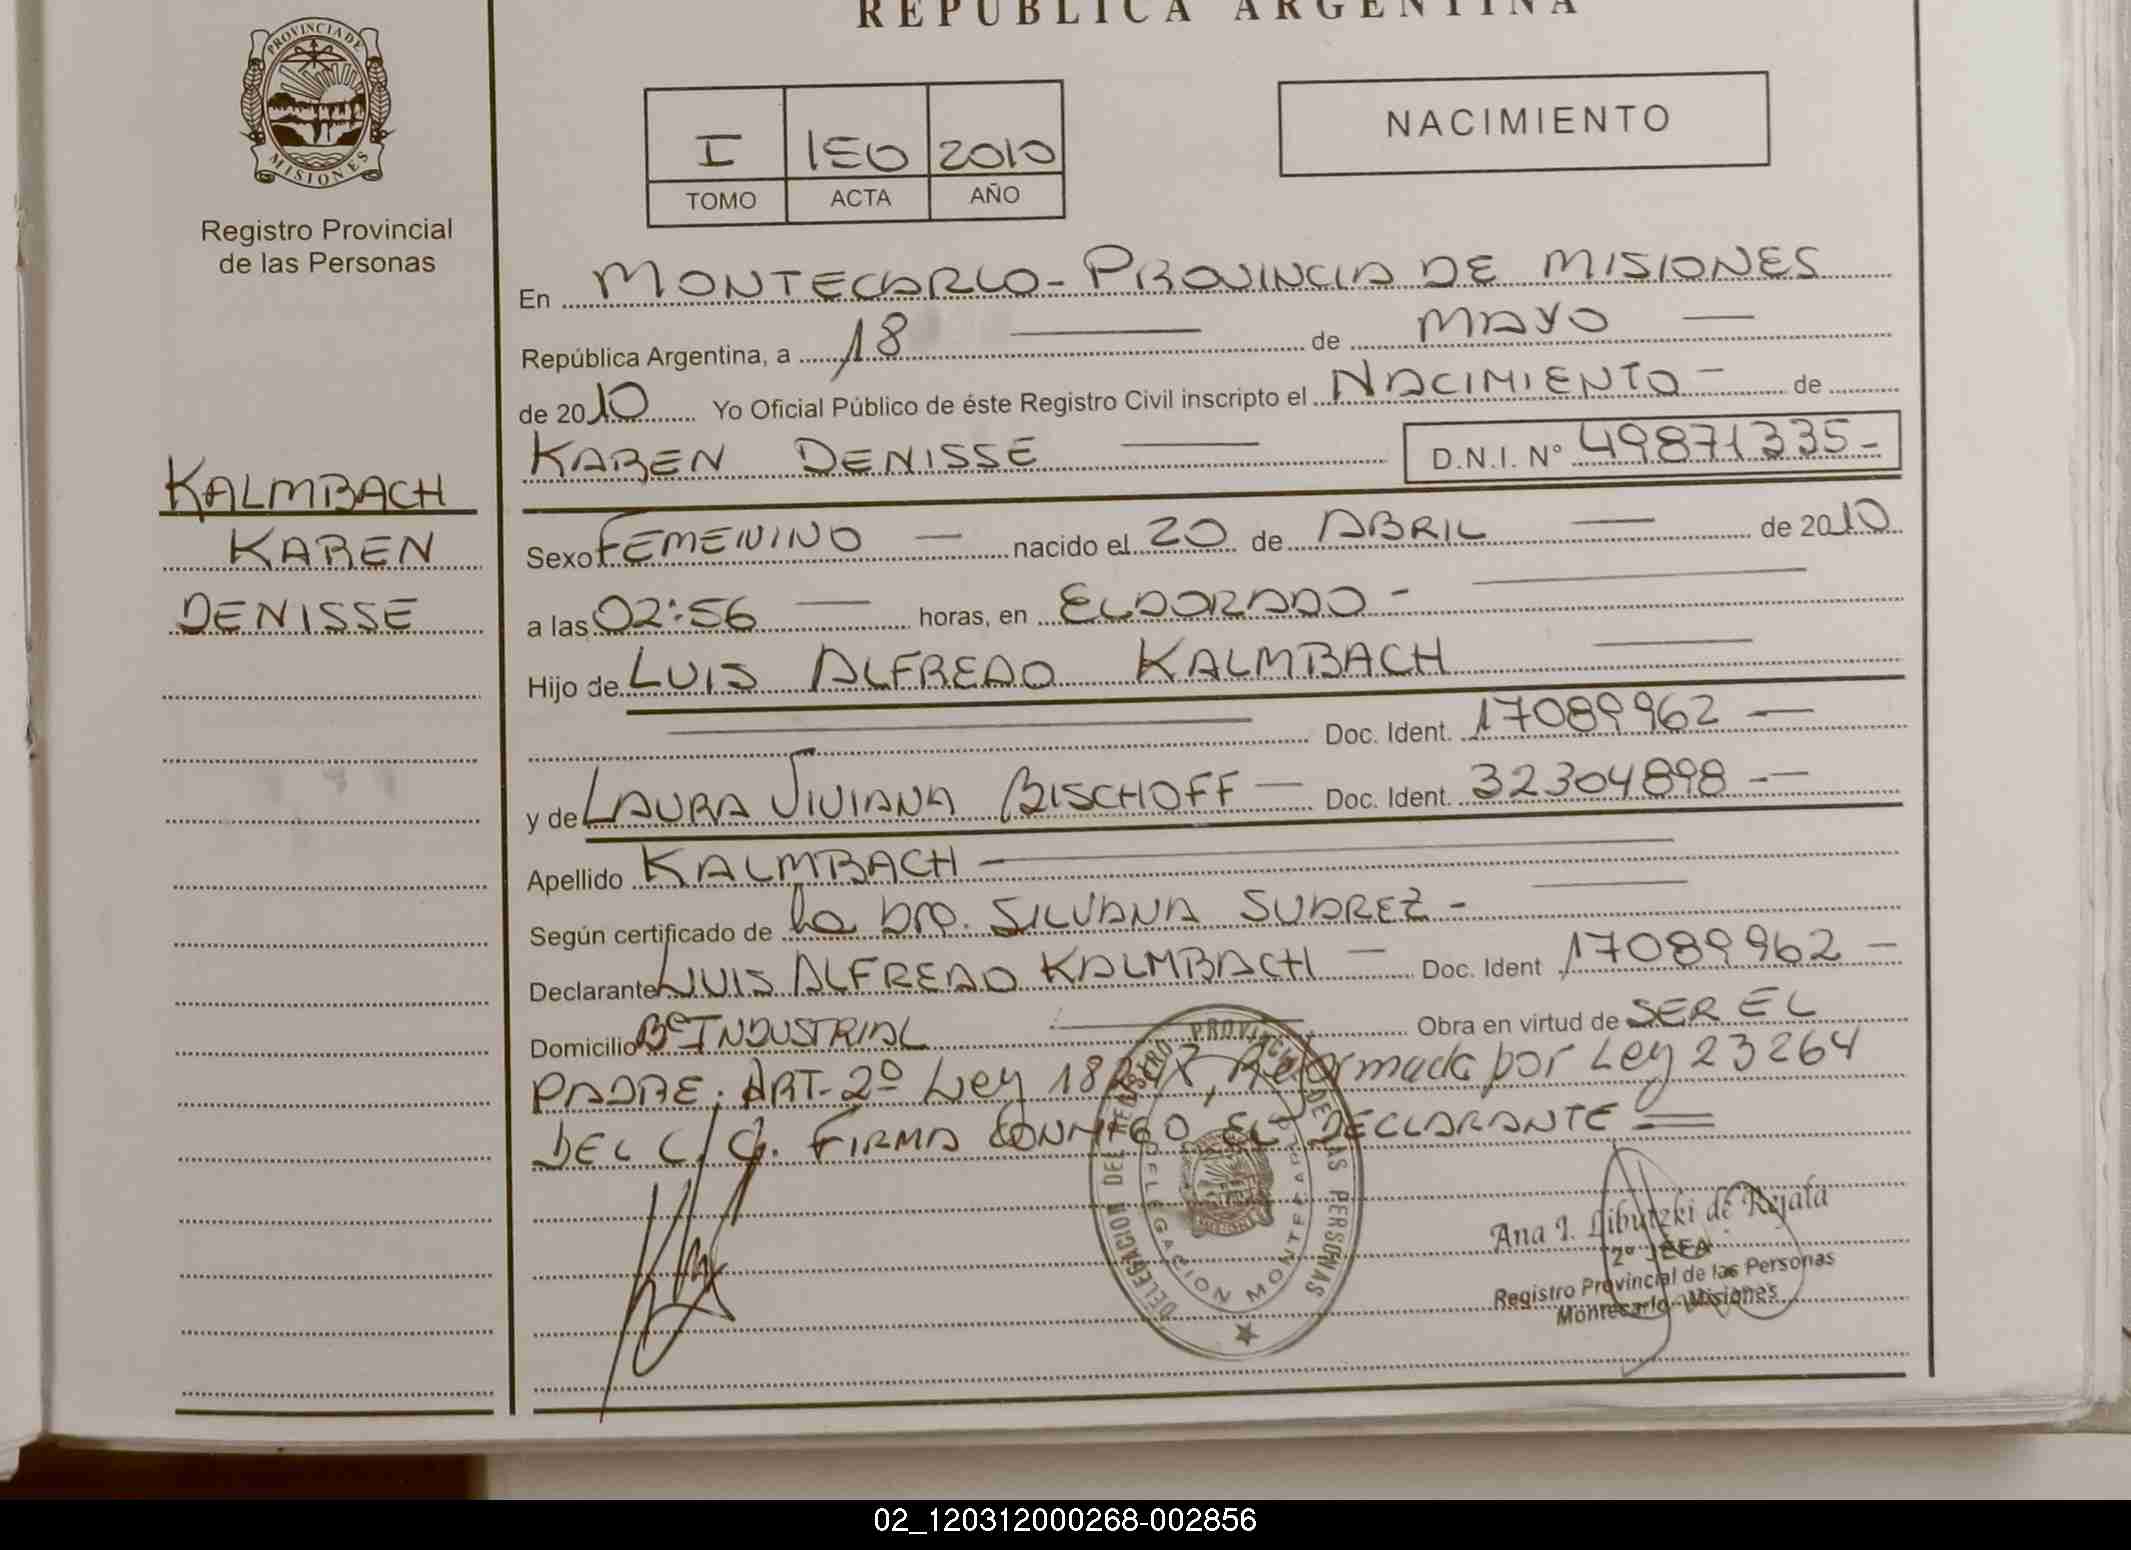 REPUBLICA ARGENTINA
PROVINCIA DE
MISIONES
Registro Provincial
de las Personas
I 150 2010
TOMO ACTA AÑO
NACIMIENTO
En MONTECARLO - PROVINCIA DE MISIONES
República Argentina, a 18 de MAYO
de 2010 Yo Oficial Público de éste Registro Civil inscripto el NACIMIENTO - de
KAREN DENISSE D.N.I. Nº 49871335-
KALMBACH
KAREN
DENISSE
Sexo FEMENINO nacido el 20 de ABRIL de 2010
a las 02:56 horas, en ELDORADO -
Hijo de LUIS ALFREDO KALMBACH
Doc. Ident. 17089962
y de LAURA VIVIANA BISCHOFF Doc. Ident. 32304898
Apellido KALMBACH
Según certificado de la Dra. SILVANA SUAREZ -
Declarante LUIS ALFREDO KALMBACH Doc. Ident 17089962
Domicilio Bº INDUSTRIAL Obra en virtud de SER EL
PADRE. ART-2º Ley 18247, Reformada por Ley 23264
DEL C.C. FIRMA CONMIGO EL DECLARANTE
DELEGACION DEL REGISTRO PROVINCIAL DE LAS PERSONAS
DELEGACION
Ana I. Libutzki de Rejala
2º JEFA
Registro Provincial de las Personas
Montecarlo - Misiones
02_120312000268-002856